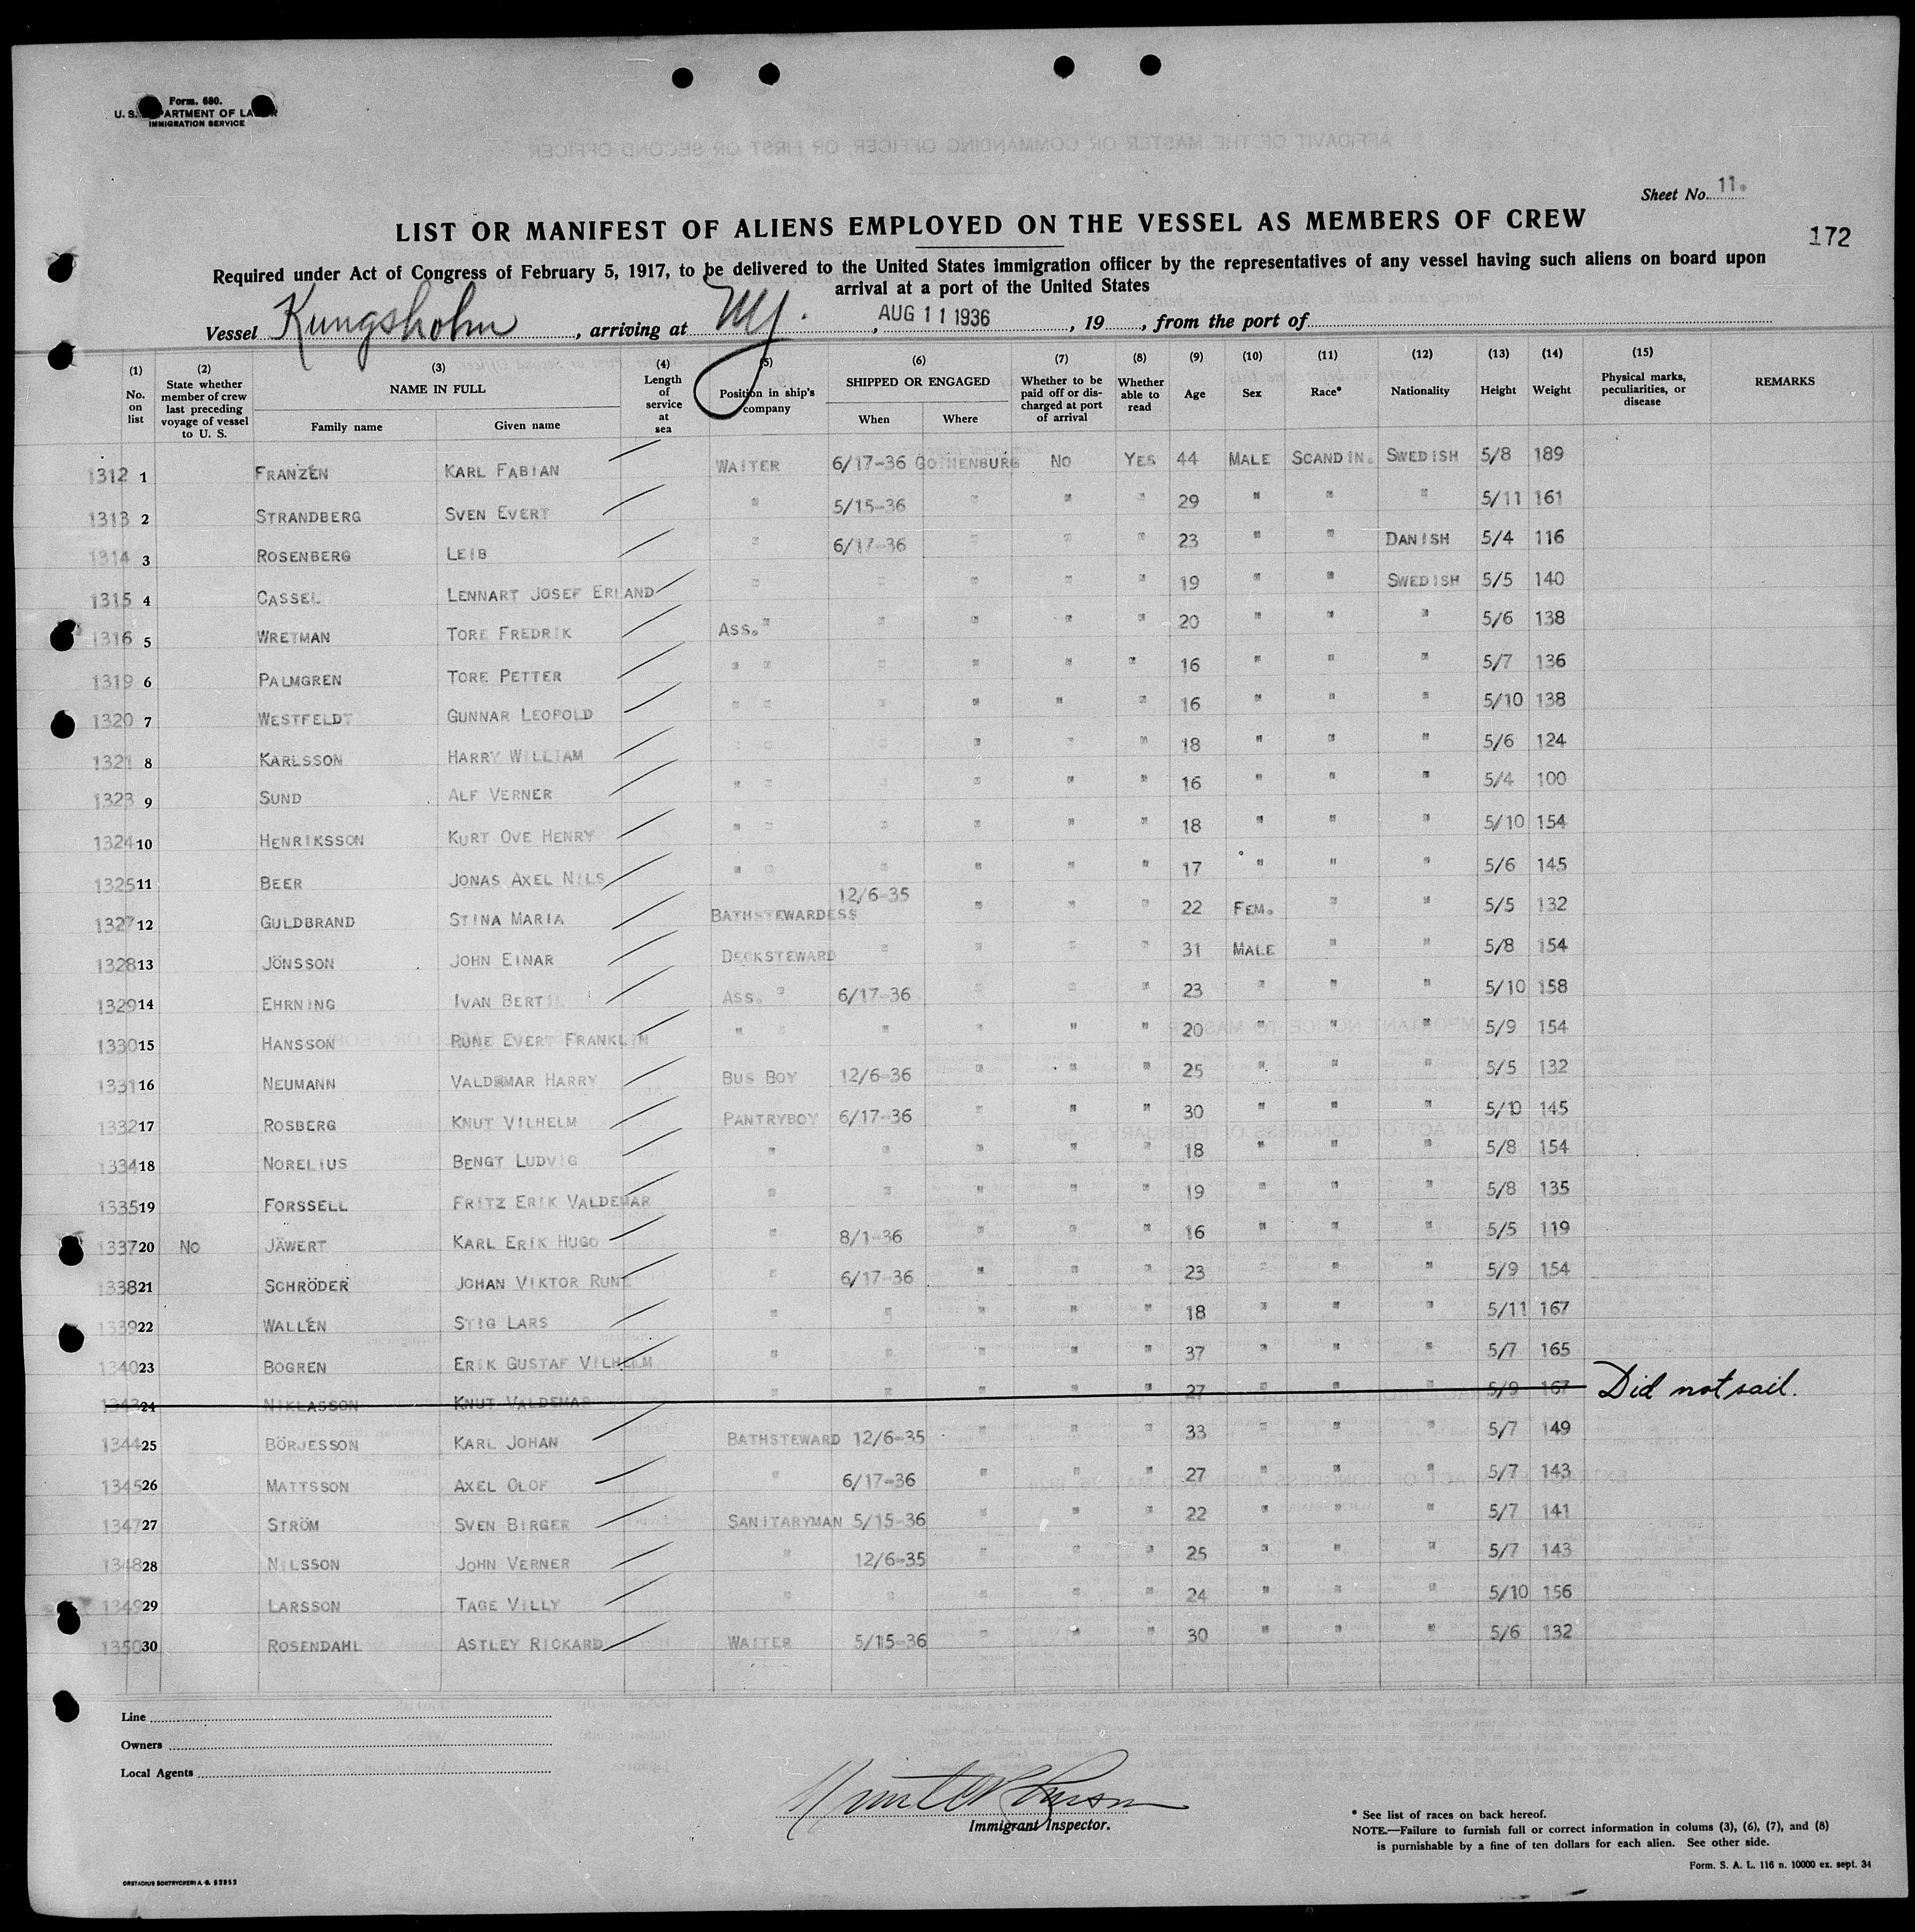 Form. 680.
U. S. DEPARTMENT OF LABOR
IMMIGRATION SERVICE
Sheet No. 11.
LIST OR MANIFEST OF ALIENS EMPLOYED ON THE VESSEL AS MEMBERS OF CREW
172
Required under Act of Congress of February 5, 1917, to be delivered to the United States immigration officer by the representatives of any vessel having such aliens on board upon
arrival at a port of the United States
Vessel Kungsholm, arriving at Ny., AUG 11 1936, 19, from the port of
(1) No. on list (2) State whether member of crew last preceding voyage of vessel to U. S. (3) NAME IN FULL Family name Given name (4) Length of service at sea (5) Position in ship's company (6) SHIPPED OR ENGAGED When Where (7) Whether to be paid off or discharged at port of arrival (8) Whether able to read (9) Age (10) Sex (11) Race* (12) Nationality (13) Height (14) Weight (15) Physical marks, peculiarities, or disease REMARKS
1312 1 FRANZÉN KARL FABIAN WAITER 6/17-36 GOTHENBURG NO YES 44 MALE SCANDIN. SWEDISH 5/8 189
1313 2 STRANDBERG SVEN EVERT " 5/15-36 " " " 29 " " " 5/11 161
1314 3 ROSENBERG LEIB " 6/17-36 " " " 23 " " DANISH 5/4 116
1315 4 CASSEL LENNART JOSEF ERLAND " " " " " 19 " " SWEDISH 5/5 140
1316 5 WRETMAN TORE FREDRIK ASS. " " " " " 20 " " " 5/6 138
1319 6 PALMGREN TORE PETTER " " " " " " 16 " " " 5/7 136
1320 7 WESTFELDT GUNNAR LEOPOLD " " " " " " 16 " " " 5/10 138
1321 8 KARLSSON HARRY WILLIAM " " " " " " 18 " " " 5/6 124
1323 9 SUND ALF VERNER " " " " " " 16 " " " 5/4 100
1324 10 HENRIKSSON KURT OVE HENRY " " " " " " 18 " " " 5/10 154
1325 11 BEER JONAS AXEL NILS " " " " " " 17 " " " 5/6 145
1327 12 GULDBRAND STINA MARIA BATHSTEWARDESS 12/6-35 " " " 22 FEM. " " 5/5 132
1328 13 JÖNSSON JOHN EINAR DECKSTEWARD " " " " 31 MALE " " 5/8 154
1329 14 EHRNING IVAN BERTIL ASS. " 6/17-36 " " " 23 " " " 5/10 158
1330 15 HANSSON RUNE EVERT FRANKLIN " " " " " " 20 " " " 5/9 154
1331 16 NEUMANN VALDEMAR HARRY BUS BOY 12/6-36 " " " 25 " " " 5/5 132
1332 17 ROSBERG KNUT VILHELM PANTRYBOY 6/17-36 " " " 30 " " " 5/10 145
1334 18 NORELIUS BENGT LUDVIG " " " " " 18 " " " 5/8 154
1335 19 FORSSELL FRITZ ERIK VALDEMAR " " " " " 19 " " " 5/8 135
1337 20 NO JÄWERT KARL ERIK HUGO " 8/1-36 " " " 16 " " " 5/5 119
1338 21 SCHRÖDER JOHAN VIKTOR RUNE " 6/17-36 " " " 23 " " " 5/9 154
1339 22 WALLÉN STIG LARS " " " " " 18 " " " 5/11 167
1340 23 BOGREN ERIK GUSTAF VILHELM " " " " " 37 " " " 5/7 165
1343 24 NIKLASSON KNUT VALDEMAR " " " " " 27 " " " 5/9 167 Did not sail.
1344 25 BÖRJESSON KARL JOHAN BATHSTEWARD 12/6-35 " " " 33 " " " 5/7 149
1345 26 MATTSSON AXEL OLOF " 6/17-36 " " " 27 " " " 5/7 143
1347 27 STRÖM SVEN BIRGER SANITARYMAN 5/15-36 " " " 22 " " " 5/7 141
1348 28 NILSSON JOHN VERNER " 12/6-35 " " " 25 " " " 5/7 143
1349 29 LARSSON TAGE VILLY " " " " " 24 " " " 5/10 156
1350 30 ROSENDAHL ASTLEY RICKARD WAITER 5/15-36 " " " 30 " " " 5/6 132
Line
Owners
Local Agents
Immigrant Inspector.
* See list of races on back hereof.
NOTE.—Failure to furnish full or correct information in colums (3), (6), (7), and (8)
is purnishable by a fine of ten dollars for each alien. See other side.
Form. S. A. L. 116 n. 10000 ex. sept. 34
ORSTADIUS BOKTRYCKERI A.-B. 52952